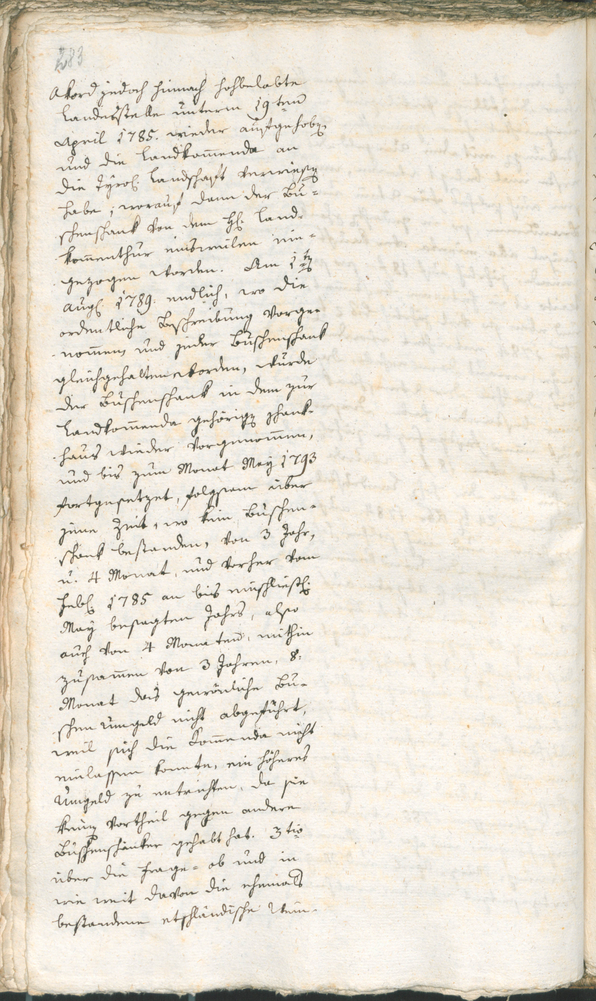 283
Akord jedoch hinnach hohbelobte
Landesstelle unterm 19ten
April 1785. wieder aufgehoben
und die Landkommenda an
die Tyrol. Landschaft verwiesen
habe; worauf dann der Bu-
schenschank von dem H. Land-
kommenthur einsweilen ein-
gezogen worden. Am 1ten
Aug. 1789. endlich, wo die
ordentliche Beschreibung vorge-
nommen, und jeder Buschenschank
gleichgehalten worden, wurde
der Buschenschank in dem zur
Landkommenda gehörigen Schank-
haus wieder vorgenommen,
und bis zum Monat May 1793
fortgesetzet, folgsam über
jene Zeit, wo kein Buschen-
schank bestanden, von 3 Jahr,
u. 4 Monat, und vorher vom
Feb. 1785 an bis einschlüssig
May besagten Jahrs, also
auch von 4 Monaten, mithin
zusammen von 3 Jahren, 8.
Monat das gewönliche Bu-
schen Umgeld nicht abgeführt,
weil sich die Kommenda nicht
einlassen konnte, ein höheres
Umgeld zu entrichten, da sie
keinen Vortheil gegen andere
Buschenschänker gehabt hat. 3tio
über die Frage: ob und in
wie weit davon die ehemals
bestandene etschländische Wein-